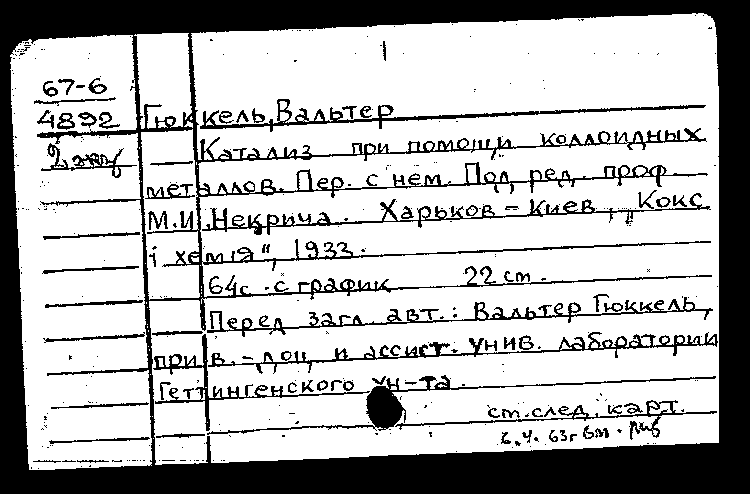 67-6
4892 Гюккель, Вальтер
2 экз Катализ при помощи коллоидных
металлов. Пер. с нем. Под ред. проф.
М.И. Некрича. Харьков - Киев, „Кокс
і хемія", 1933.
64с. с график 22 cm.
Перед загл. авт.: Вальтер Гюккель,
прив.-доц. и ассист. унив. лаборатории
Геттингенского ун-та.
см. след. карт.